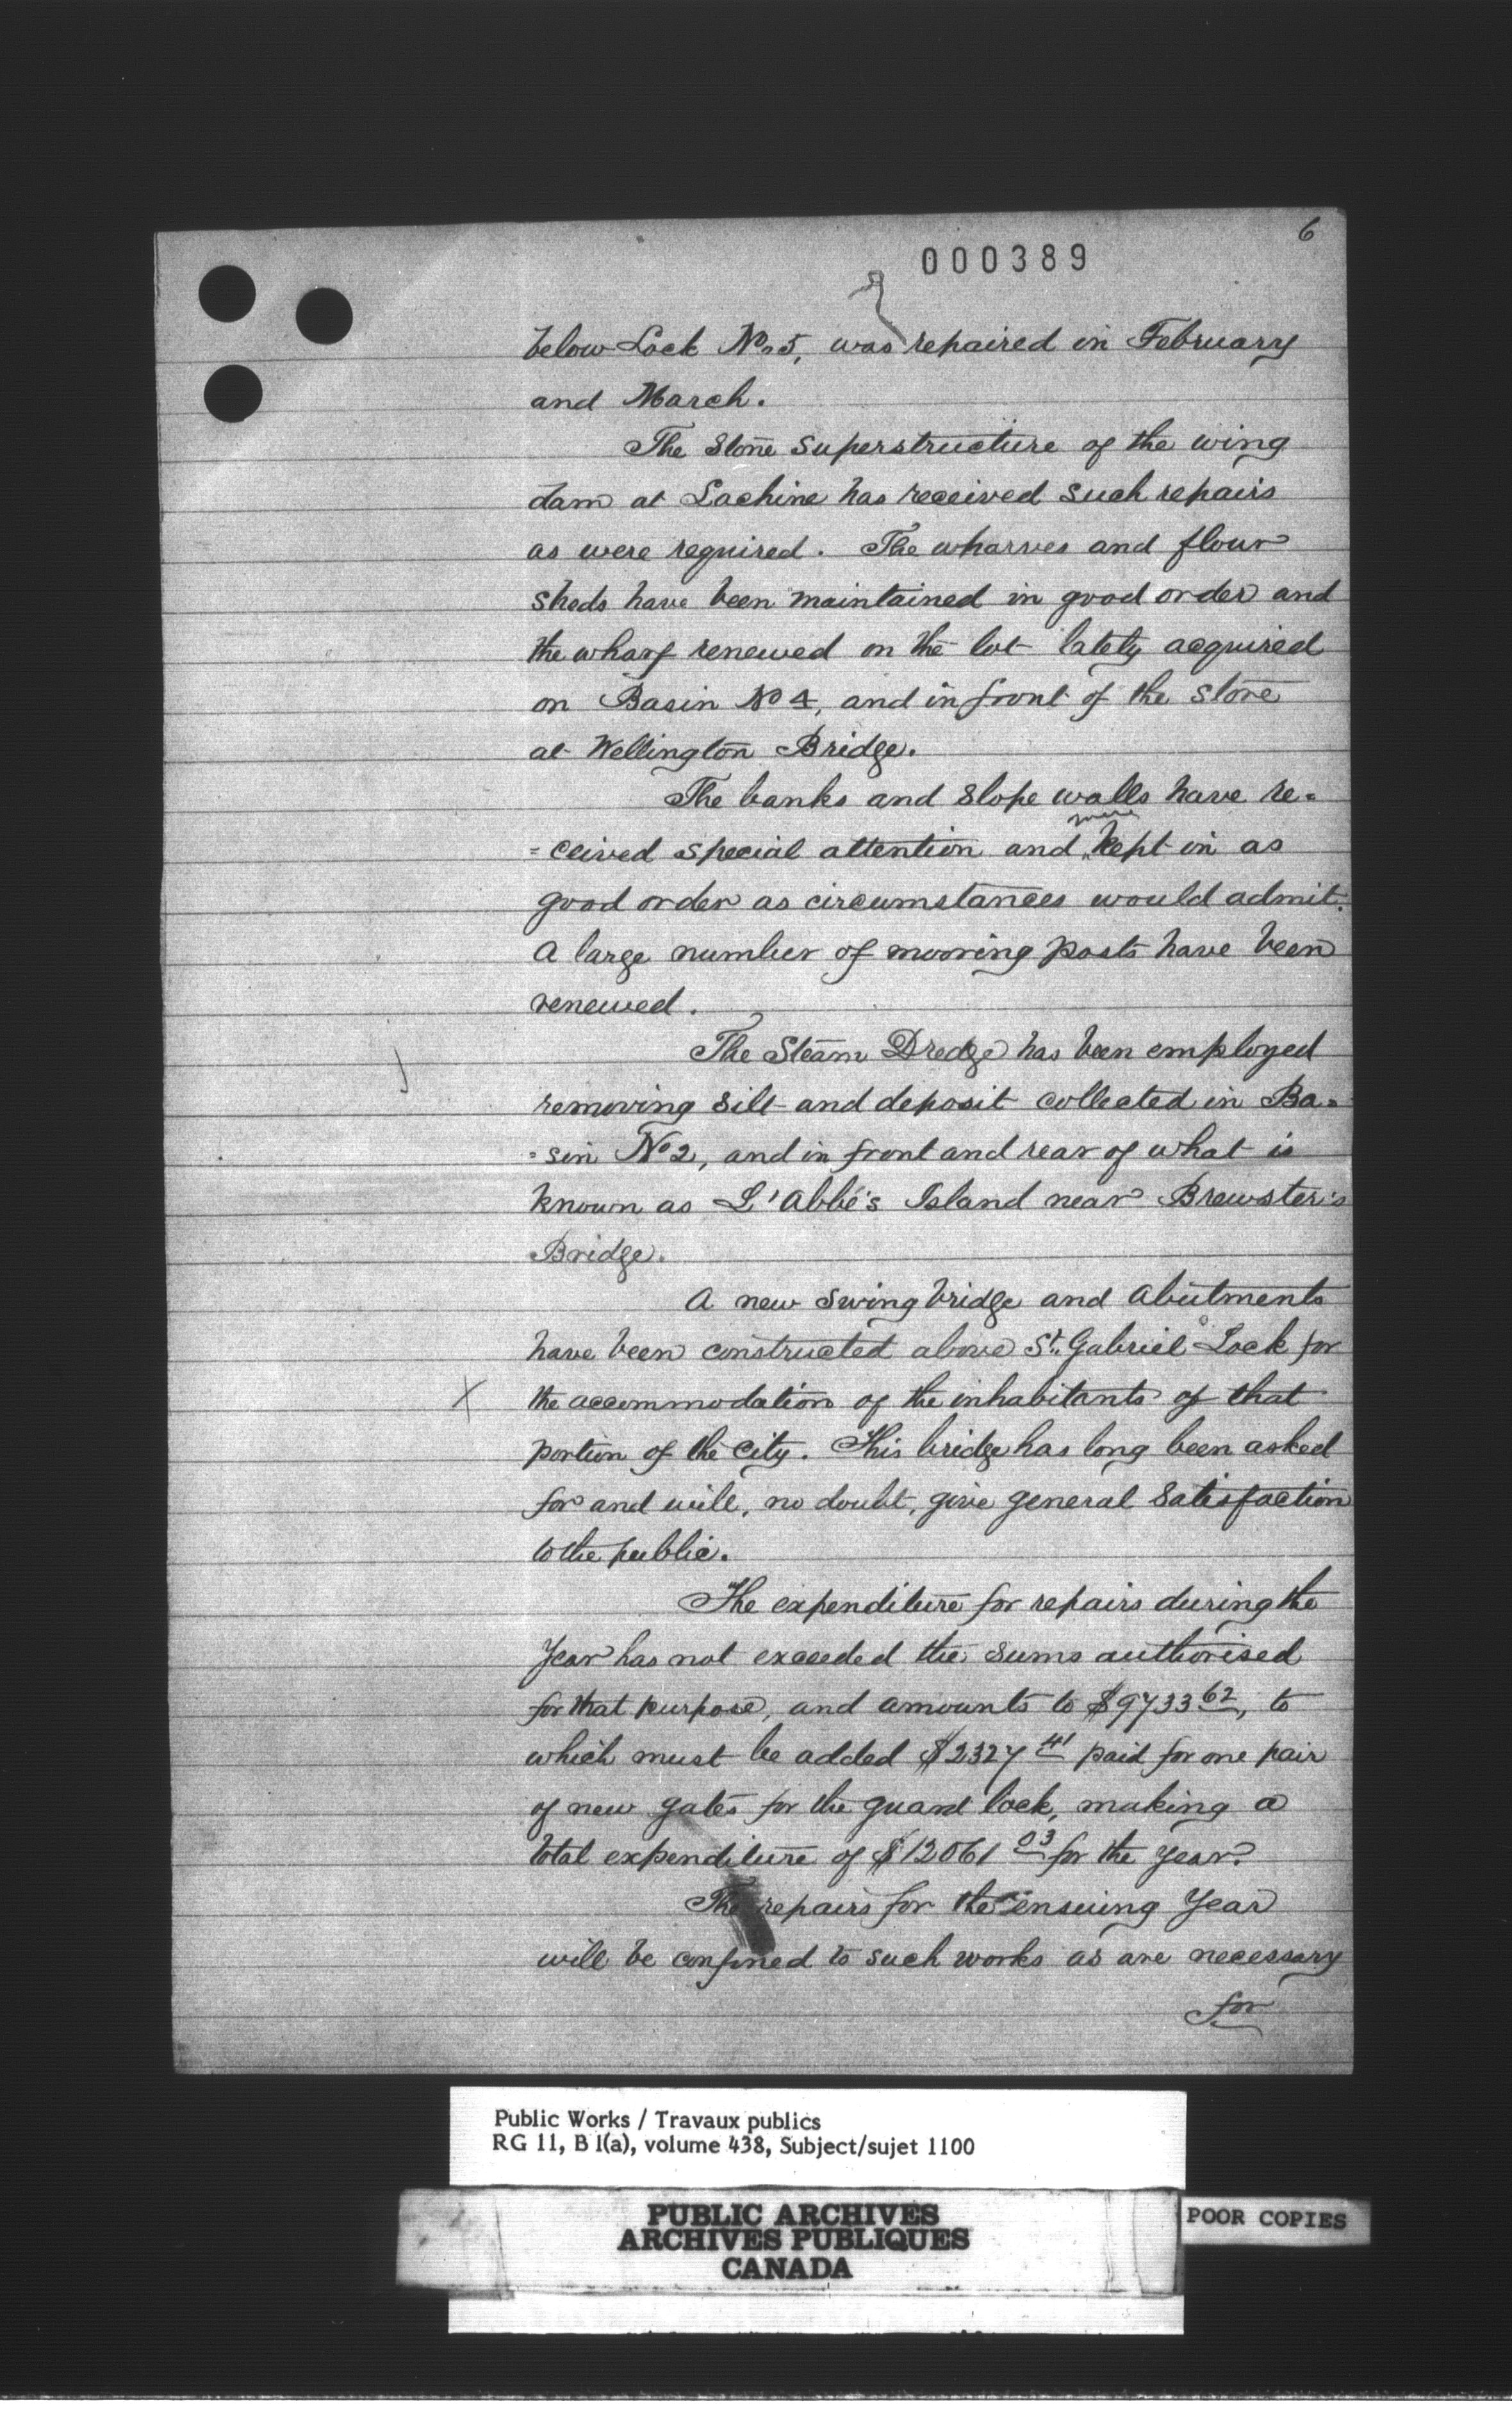 6
000389
below Lock No 5, was repaired in February
and March.
The Stone Superstructure of the wing
dam at Lachine has received such repairs
as were required. The wharves and flour
Sheds have been maintained in good order and
the wharf renewed on the lot lately acquired
on Basin No 4, and in front of the Store
at Wellington Bridge.
The banks and Slope walls have re=
were
=ceived special attention and kept in as
good order as circumstances would admit.
A large number of mooring posts have been
renewed.
The Steam Dredge has been employed
removing Silt and deposit collected in Ba=
=sin No 2, and in front and rear of what is
known as L'Abbé's Island near Brewster's
Bridge.
A new Swing bridge and Abutments
have been constructed above St. Gabriel Lock for
X the accommodation of the inhabitants of that
portion of the City. This bridge has long been asked
for and will, no doubt, give general Satisfaction
to the public.
The expenditure for repairs during the
Year has not exceeded the Sums authorised
for that purpose, and amounts to $9733 62, to
which must be added $2327 41 paid for one pair
of new gates for the guard lock, making a
total expenditure of $12061 03 for the Year.
The repairs for the ensuing Year
will be confined to such works as are necessary
for
Public Works / Travaux publics
RG 11, B 1(a), volume 438, Subject/sujet 1100
PUBLIC ARCHIVES
ARCHIVES PUBLIQUES
CANADA
POOR COPIES